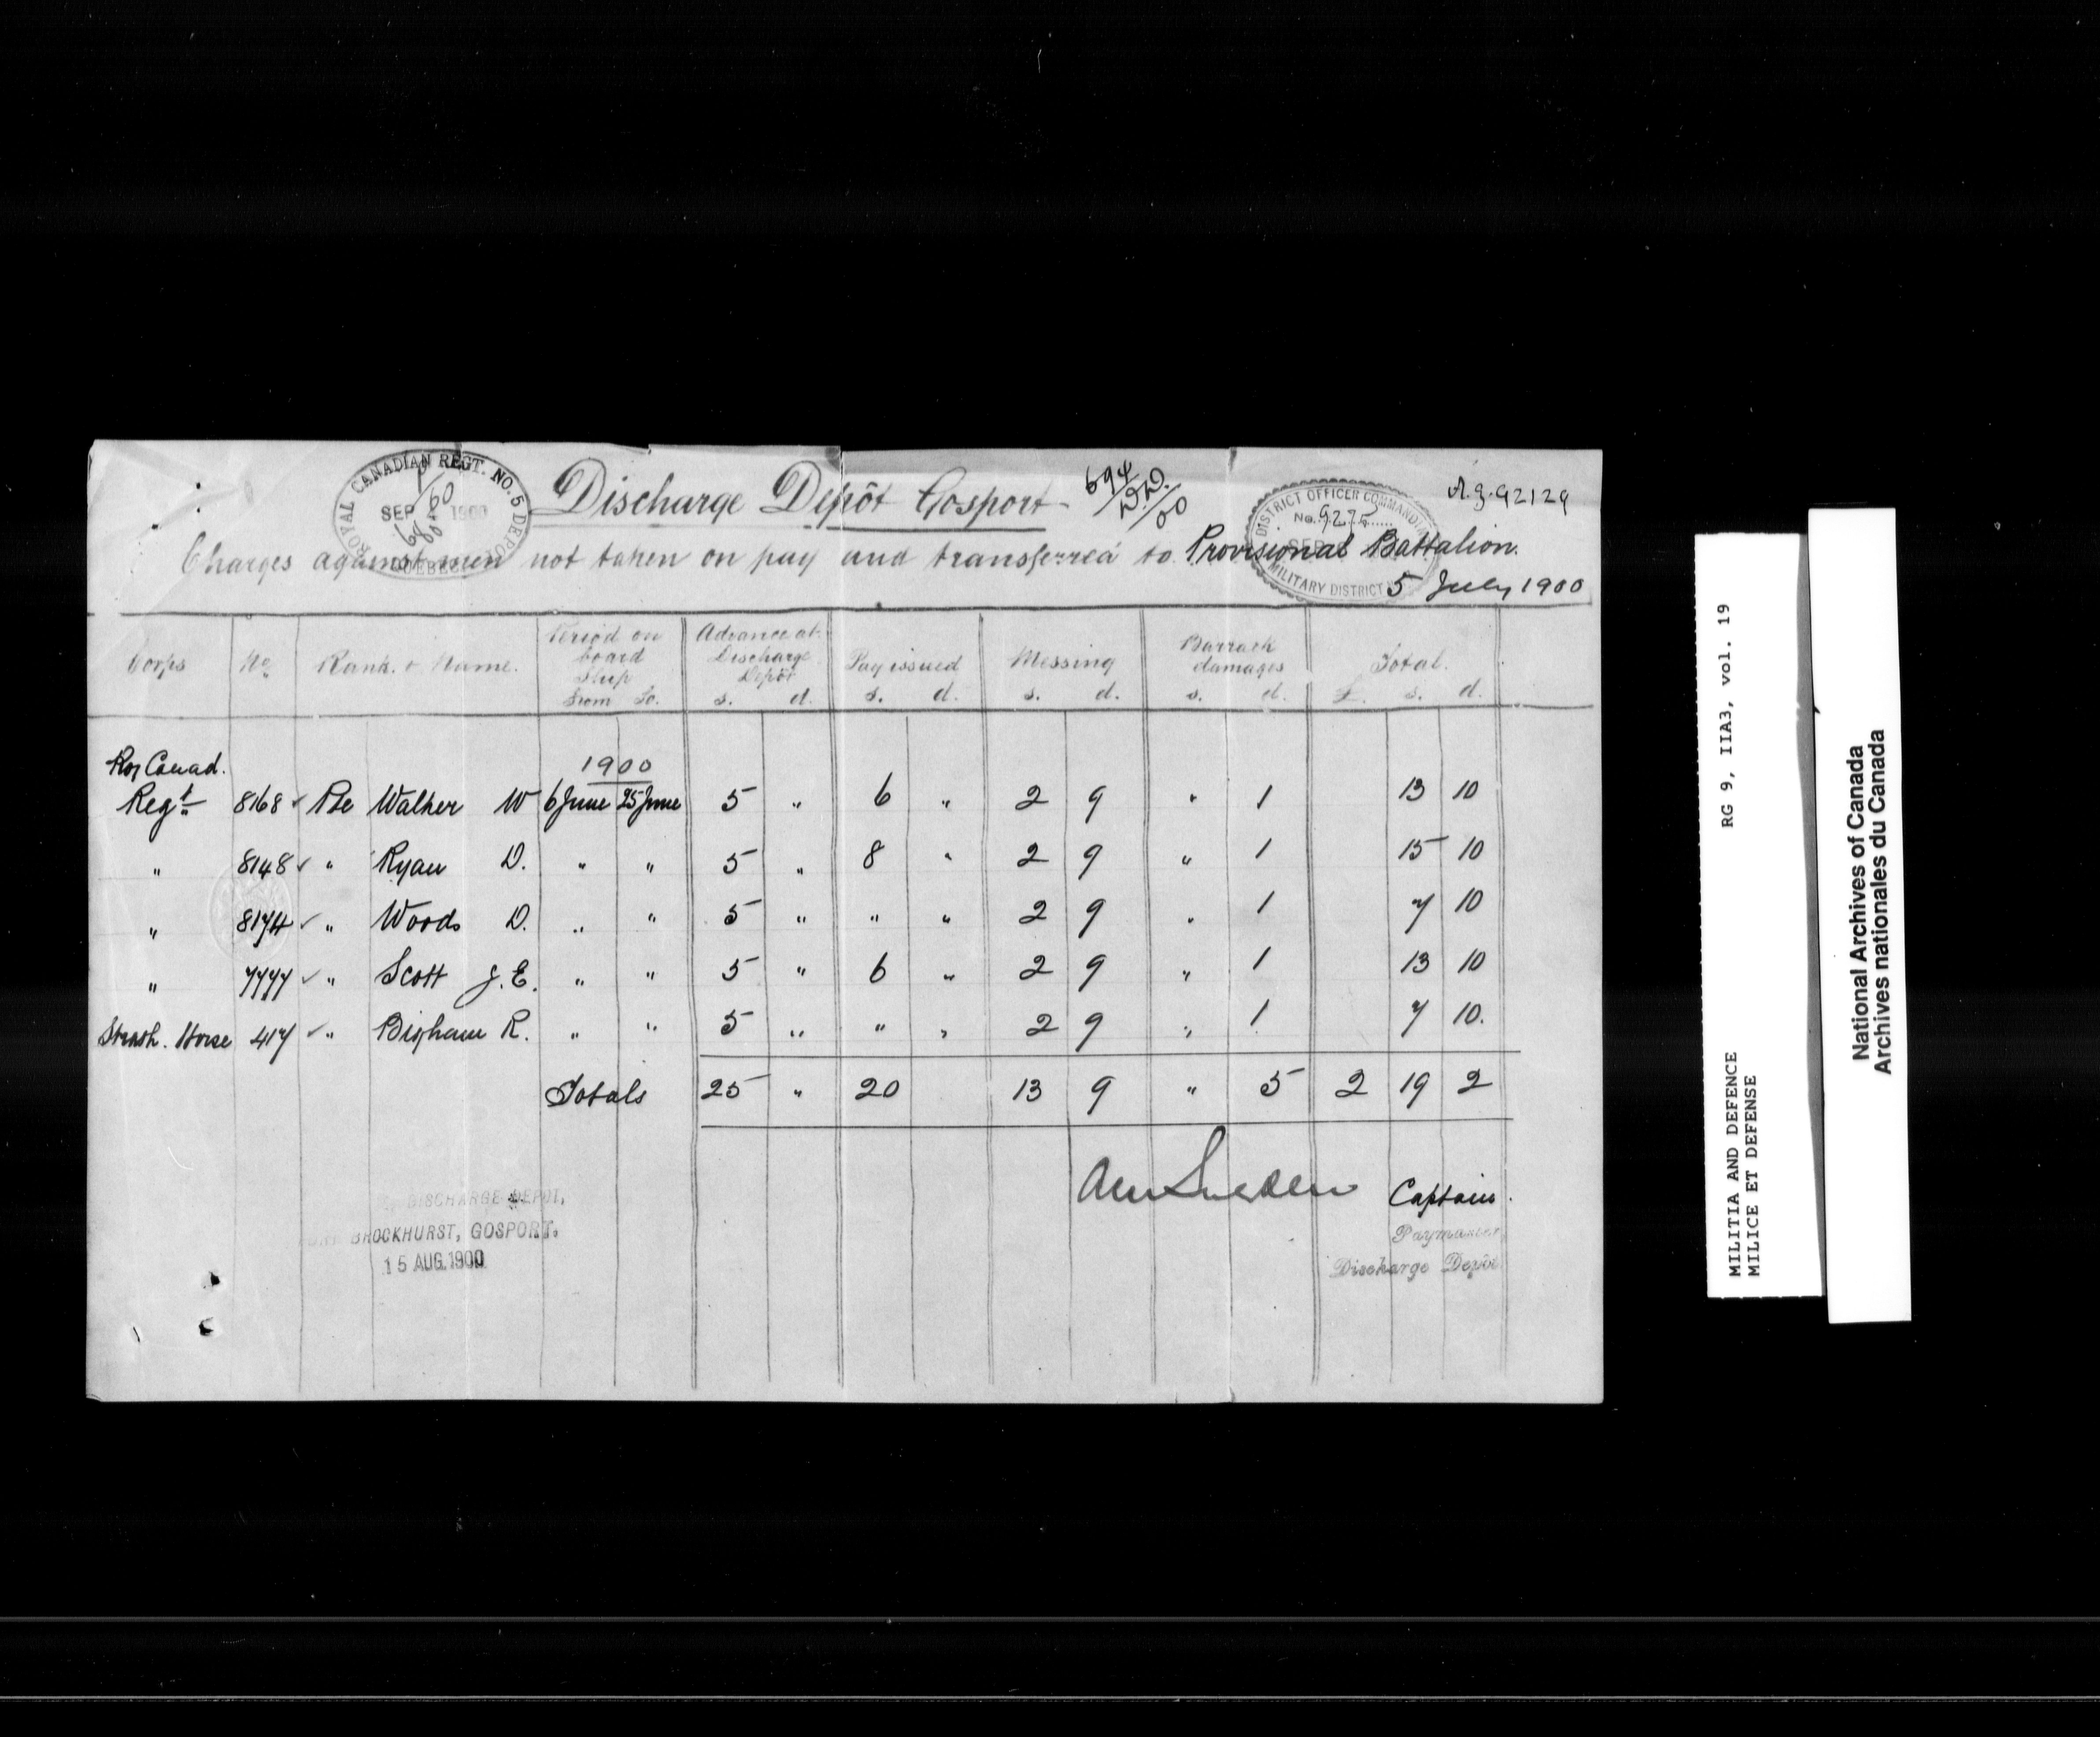 ROYAL CANADIAN REGT. NO. 5 DEPOT
SEP 1900
QUEBEC
Discharge Depôt Gosport-
694/D.D./00
DISTRICT OFFICER COMMANDING
No. 9275
MILITARY DISTRICT
A.G. 92129
Charges against men not taken on pay and transferred to Provisional Battalion.
5 July 1900
Corps No. Rank. & Name. Period on board Ship From To. Advance at Discharge Depôt s. d. Pay issued s. d. Messing s. d. Barrack damages s. d. Total. £. s. d.
Roy Canad. 1900
Regt 8168 ✓ Pte Walker W 6 June 25 June 5 " 6 " 2 9 " 1 13 10
" 8148 ✓ " Ryan D. " " 5 " 8 " 2 9 " 1 15 10
" 8174 ✓ " Woods D. " " 5 " " " 2 9 " 1 7 10
" 7777 ✓ " Scott J. E. " " 5 " 6 " 2 9 " 1 13 10
Strath. Horse 417 ✓ " Bigham R. " " 5 " " " 2 9 " 1 7 10.
Totals 25 " 20 13 9 " 5 2 19 2
Captain.
Paymaster,
Discharge Depôt
DISCHARGE DEPOT,
FORT BROCKHURST, GOSPORT.
15 AUG. 1900
RG 9, IIA3, vol. 19
MILITIA AND DEFENCE
MILICE ET DEFENSE
National Archives of Canada
Archives nationales du Canada